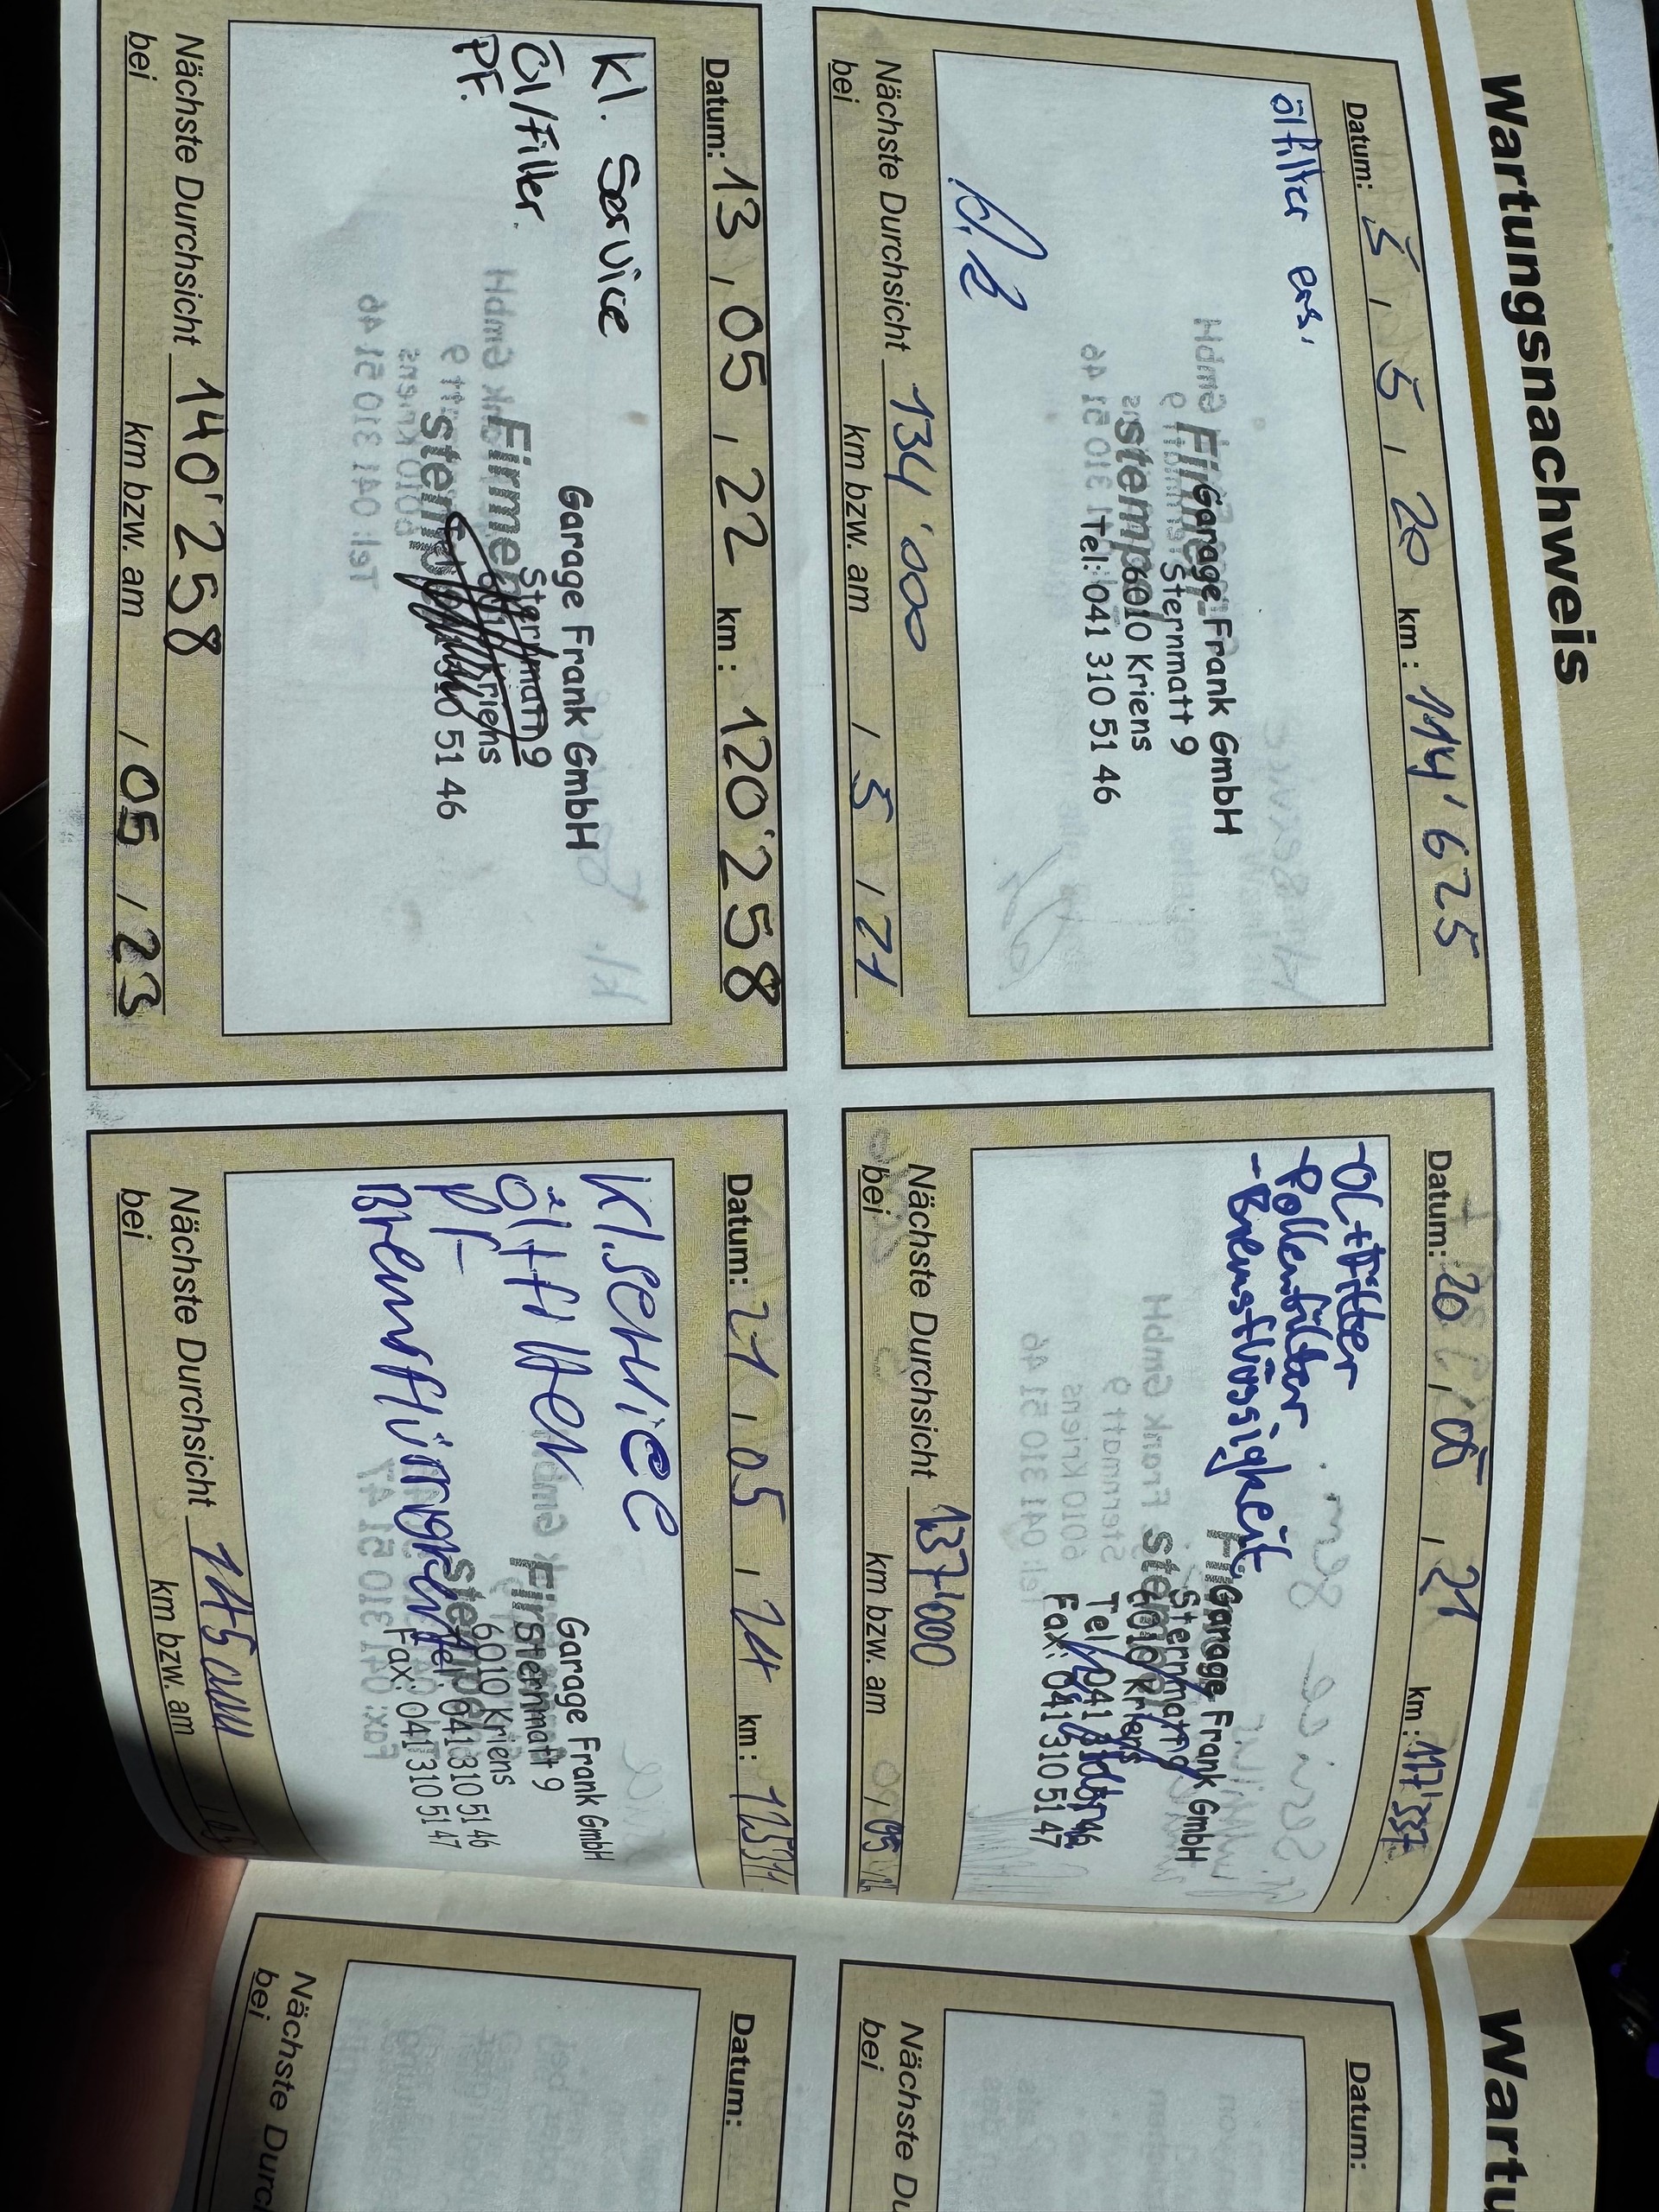 Wartungsnachweis
Datum: 5 , 5 , 20 km: 114'625
ölfilter ers.
Firmen-
stempel
Garage Frank GmbH
Sternmatt 9
6010 Kriens
Tel: 041 310 51 46
Nächste Durchsicht 134'000
bei km bzw. am / 5 / 21
Datum: 20 , 05 , 21 km: 117'337
-Öl+Filter
-Pollenfilter
-Bremsflüssigkeit
Garage Frank GmbH
Sternmatt 9
6010 Kriens
Tel: 041 310 51 46
Fax: 041 310 51 47
Nächste Durchsicht 137'000
bei km bzw. am 05
Datum: 13 , 05 , 22 km: 120'258
Kl. Service
Öl/Filter.
PF.
Firmen-
stempel
Garage Frank GmbH
Sternmatt 9
6010 Kriens
310 51 46
Nächste Durchsicht 140'258
bei km bzw. am / 05 / 23
Datum: 21 , 05 , 24 km:
Kl. Service
Öl+Filter
PF
Garage Frank GmbH
Sternmatt 9
6010 Kriens
Tel: 041 310 51 46
Fax: 041 310 51 47
Nächste Durchsicht
bei km bzw. am
Wartu
Datum:
Nächste Du
bei
Datum:
Nächste Durc
bei